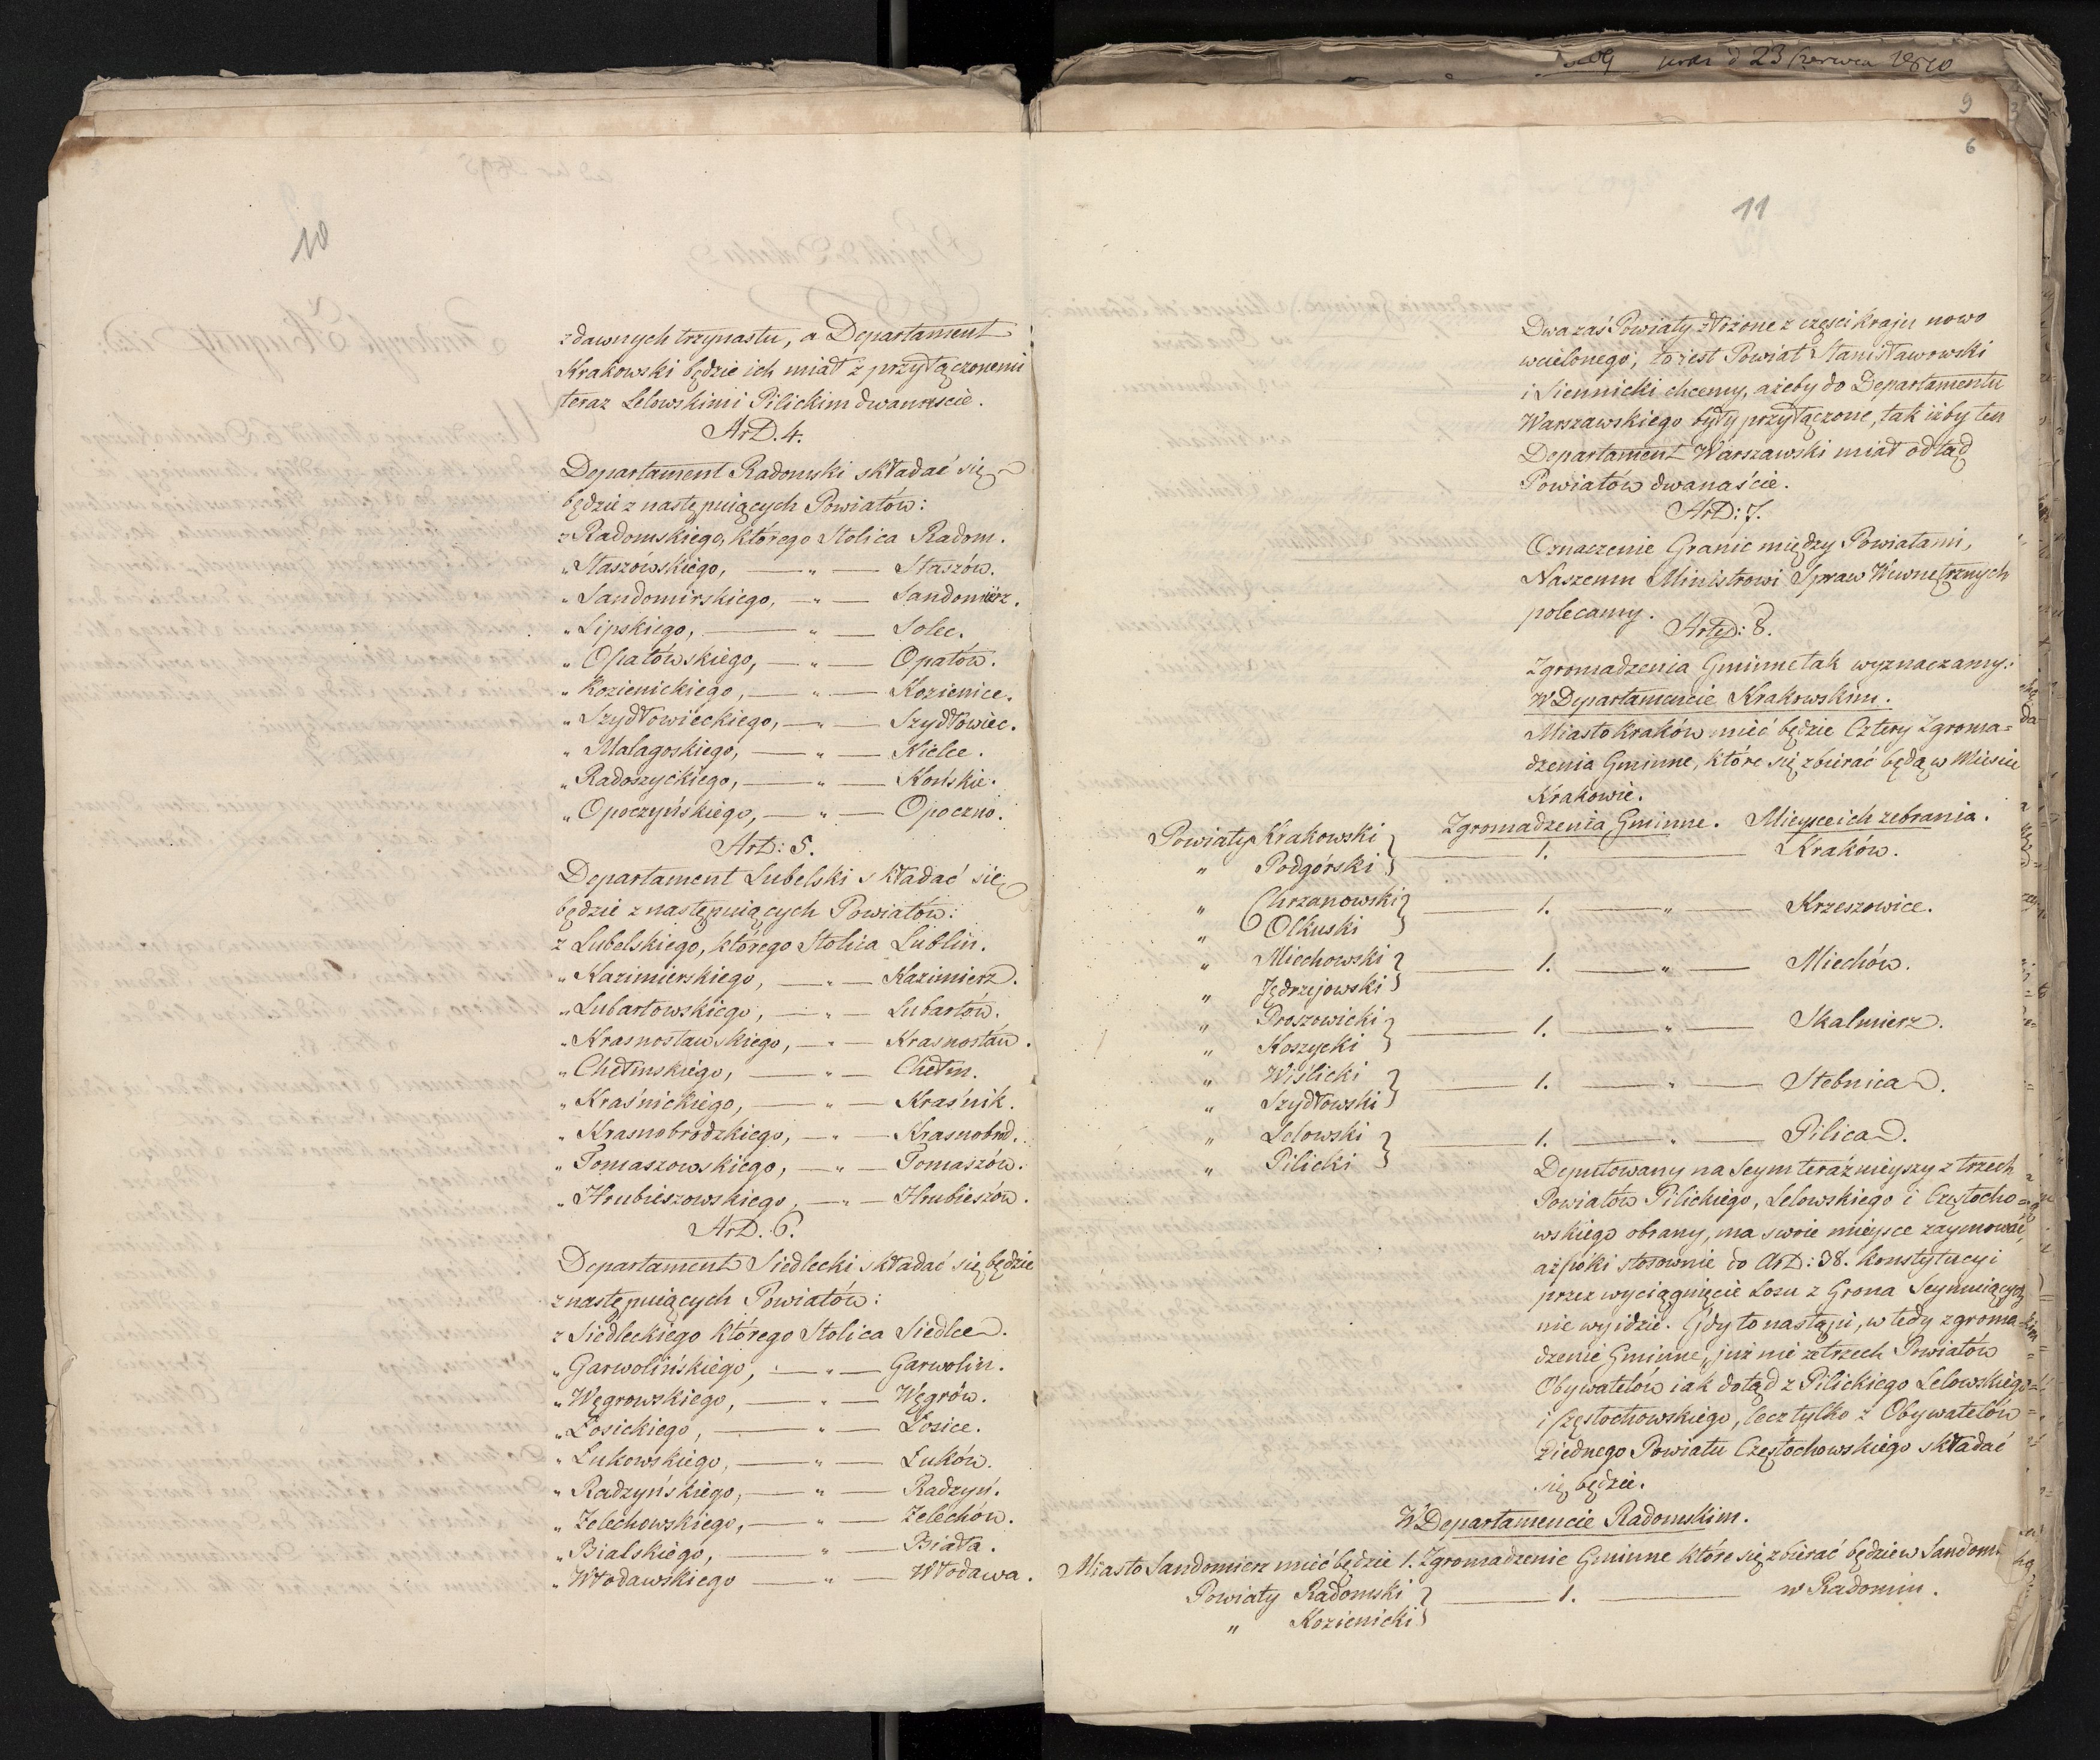 10
zdawnych trzynastu, a Departament
Krakowski będzie ich miał z przyłączonemi
teraz Lelowskim i Pilickim dwanaście.
Art. 4.
Departament Radomski składać się
będzie z następuiących Powiatów:
z Radomskiego, którego Stolica Radom.
„ Staszówskiego, — „ — Staszów.
„ Sandomirskiego, — „ — Sandomierz.
„ Lipskiego, — „ — Solec.
„ Opatówskiego, — „ — Opatów.
„ Kozienickiego, — „ — Kozienice.
„ Szydłowieckiego, — „ — Szydłowiec.
„ Malagoskiego, — „ — Kielce.
„ Radoszyckiego, — „ — Końskie.
„ Opoczyńskiego, — „ — Opoczno.
Art: 5.
Departament Lubelski składać się
będzie z następuiących Powiatów:
z Lubelskiego, którego Stolica Lublin.
„ Kazimierskiego, — „ — Kazimierz.
„ Lubartowskiego, — „ — Lubartów.
„ Krasnostawskiego, — „ — Krasnostaw.
„ Chełmskiego, — „ — Chełm.
„ Kraśnickiego, — „ — Kraśnik.
„ Krasnobrodzkiego, — „ — Krasnobrod.
„ Tomaszowskiego, — „ — Tomaszów.
„ Hrubieszowskiego, — „ — Hrubieszów.
Art. 6.
Departament Siedlecki składać się będzie
z następuiących Powiatów:
z Siedleckiego którego Stolica Siedlce.
„ Garwolińskiego, — „ — Garwolin.
„ Węgrowskiego, — „ — Węgrów.
„ Łosickiego, — „ — Łosice.
„ Łukowskiego, — „ — Łuków.
„ Radzyńskiego, — „ — Radzyń.
„ Żelechowskiego, — „ — Żelechów.
„ Bialskiego, — „ — Biała.
„ Włodawskiego — „ — Włodawa.
d 23 Czerwca 1810
9
6
11
Dwa zaś Powiaty złożone z części kraju nowo
wcielonego, to iest Powiat Stanisławowski
i Siennicki chcemy, ażeby do Departamentu
Warszawskiego były przyłączone, tak iżby ten
Departament Warszawski miał odtąd
Powiatów dwanaście.
Art: 7.
Oznaczenie Granic między Powiatami,
Naszemu Ministrowi Spraw Wewnętrznych
polecamy.
Art: 8.
Zgromadzenia Gminne tak wyznaczamy:
W Departamencie Krakowskim.
Miasto Kraków mieć będzie Cztery Zgroma=
dzenia Gminne, które się zbierać będą w Mieście
Krakowie.
Zgromadzenia Gminne. Mieysce ich zebrania.
Powiaty Krakowski
„ Podgórski } — 1. — Kraków.
„ Chrzanowski
„ Olkuski } — 1. — „ — Krzeszowice.
„ Miechowski
„ Jędrzejowski } — 1. — „ — Miechów.
„ Proszowicki
„ Koszycki } — 1. — „ — Skalmierz.
„ Wiślicki
„ Szydłowski } — 1. — „ — Stebnica.
„ Lelowski
„ Pilicki } — 1. — „ — Pilica.
Deputowany na Seym teraźnieyszy z trzech
Powiatów Pilickiego, Lelowskiego i Częstocho=
wskiego obrany, ma swoie mieysce zaymować,
aż póki stosownie do Art: 38. Konstytucyi
przez wyciągnięcie Losu z Grona Seymuiących
nie wyidzie. Gdy to nastąpi, wtedy zgroma=
dzenie Gminne, już nie z trzech Powiatów
Obywatelów iak dotąd z Pilickiego Lelowskiego
i Częstochowskiego, lecz tylko z Obywatelów
z iednego Powiatu Częstochowskiego składać
się będzie.
W Departamencie Radomskim.
Miasto Sandomierz mieć będzie 1. Zgromadzenie Gminne które się zbierać będzie w
Powiaty Radomski
„ Kozienicki } — 1. — w Radomiu.